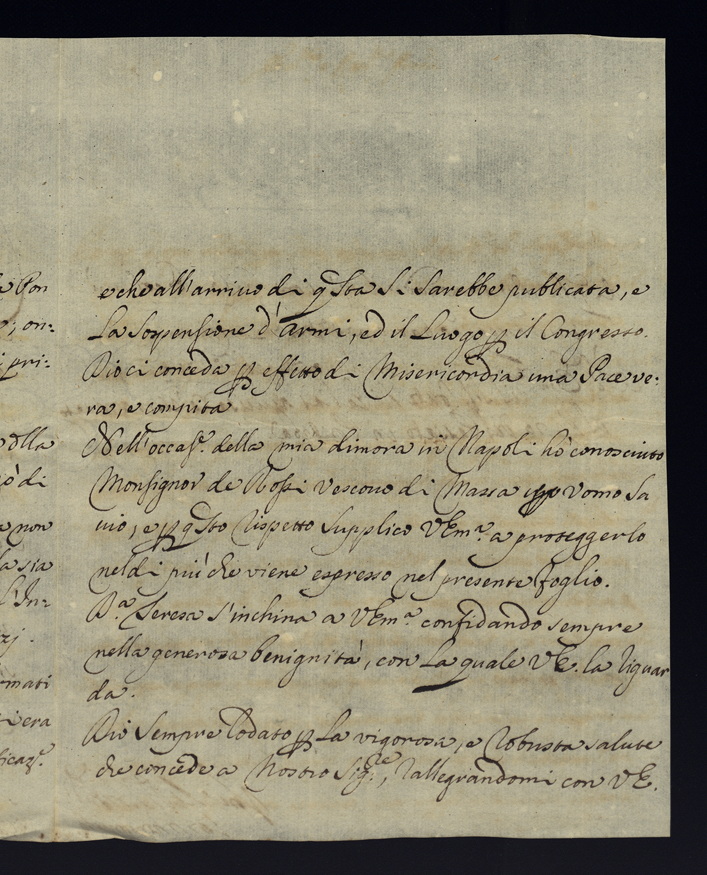 e che all'arrivo di q'sta si sarebbe publicata, e
La Sospensione d'armi, ed il Luogo p il Congresso.
Dio ci conceda p effetto di Misericordia una Pace ve:
ra, e compita
Nell'occas.e della mia dimora in Napoli hò conosciuto
Monsignor de Rossi Vescovo di Massa p Vomo Sa
vio, e p q'sto Rispetto Supplico VEm.a a proteggerlo
nel di più che viene espresso nel presente foglio.
D.a Teresa s'inchina a VEm.a confidando sempre
nella generosa benignità, con La quale VE. la riguar
da.
Dio sempre lodato p La vigorosa, e robusta salute
che concede a Nostro Sig.re, rallegrandomi con VE.
a Pon
, on:
i pri:
olla
ò di
e non
la sia
l'In:
zj.
rmati
i era
ficaz.e